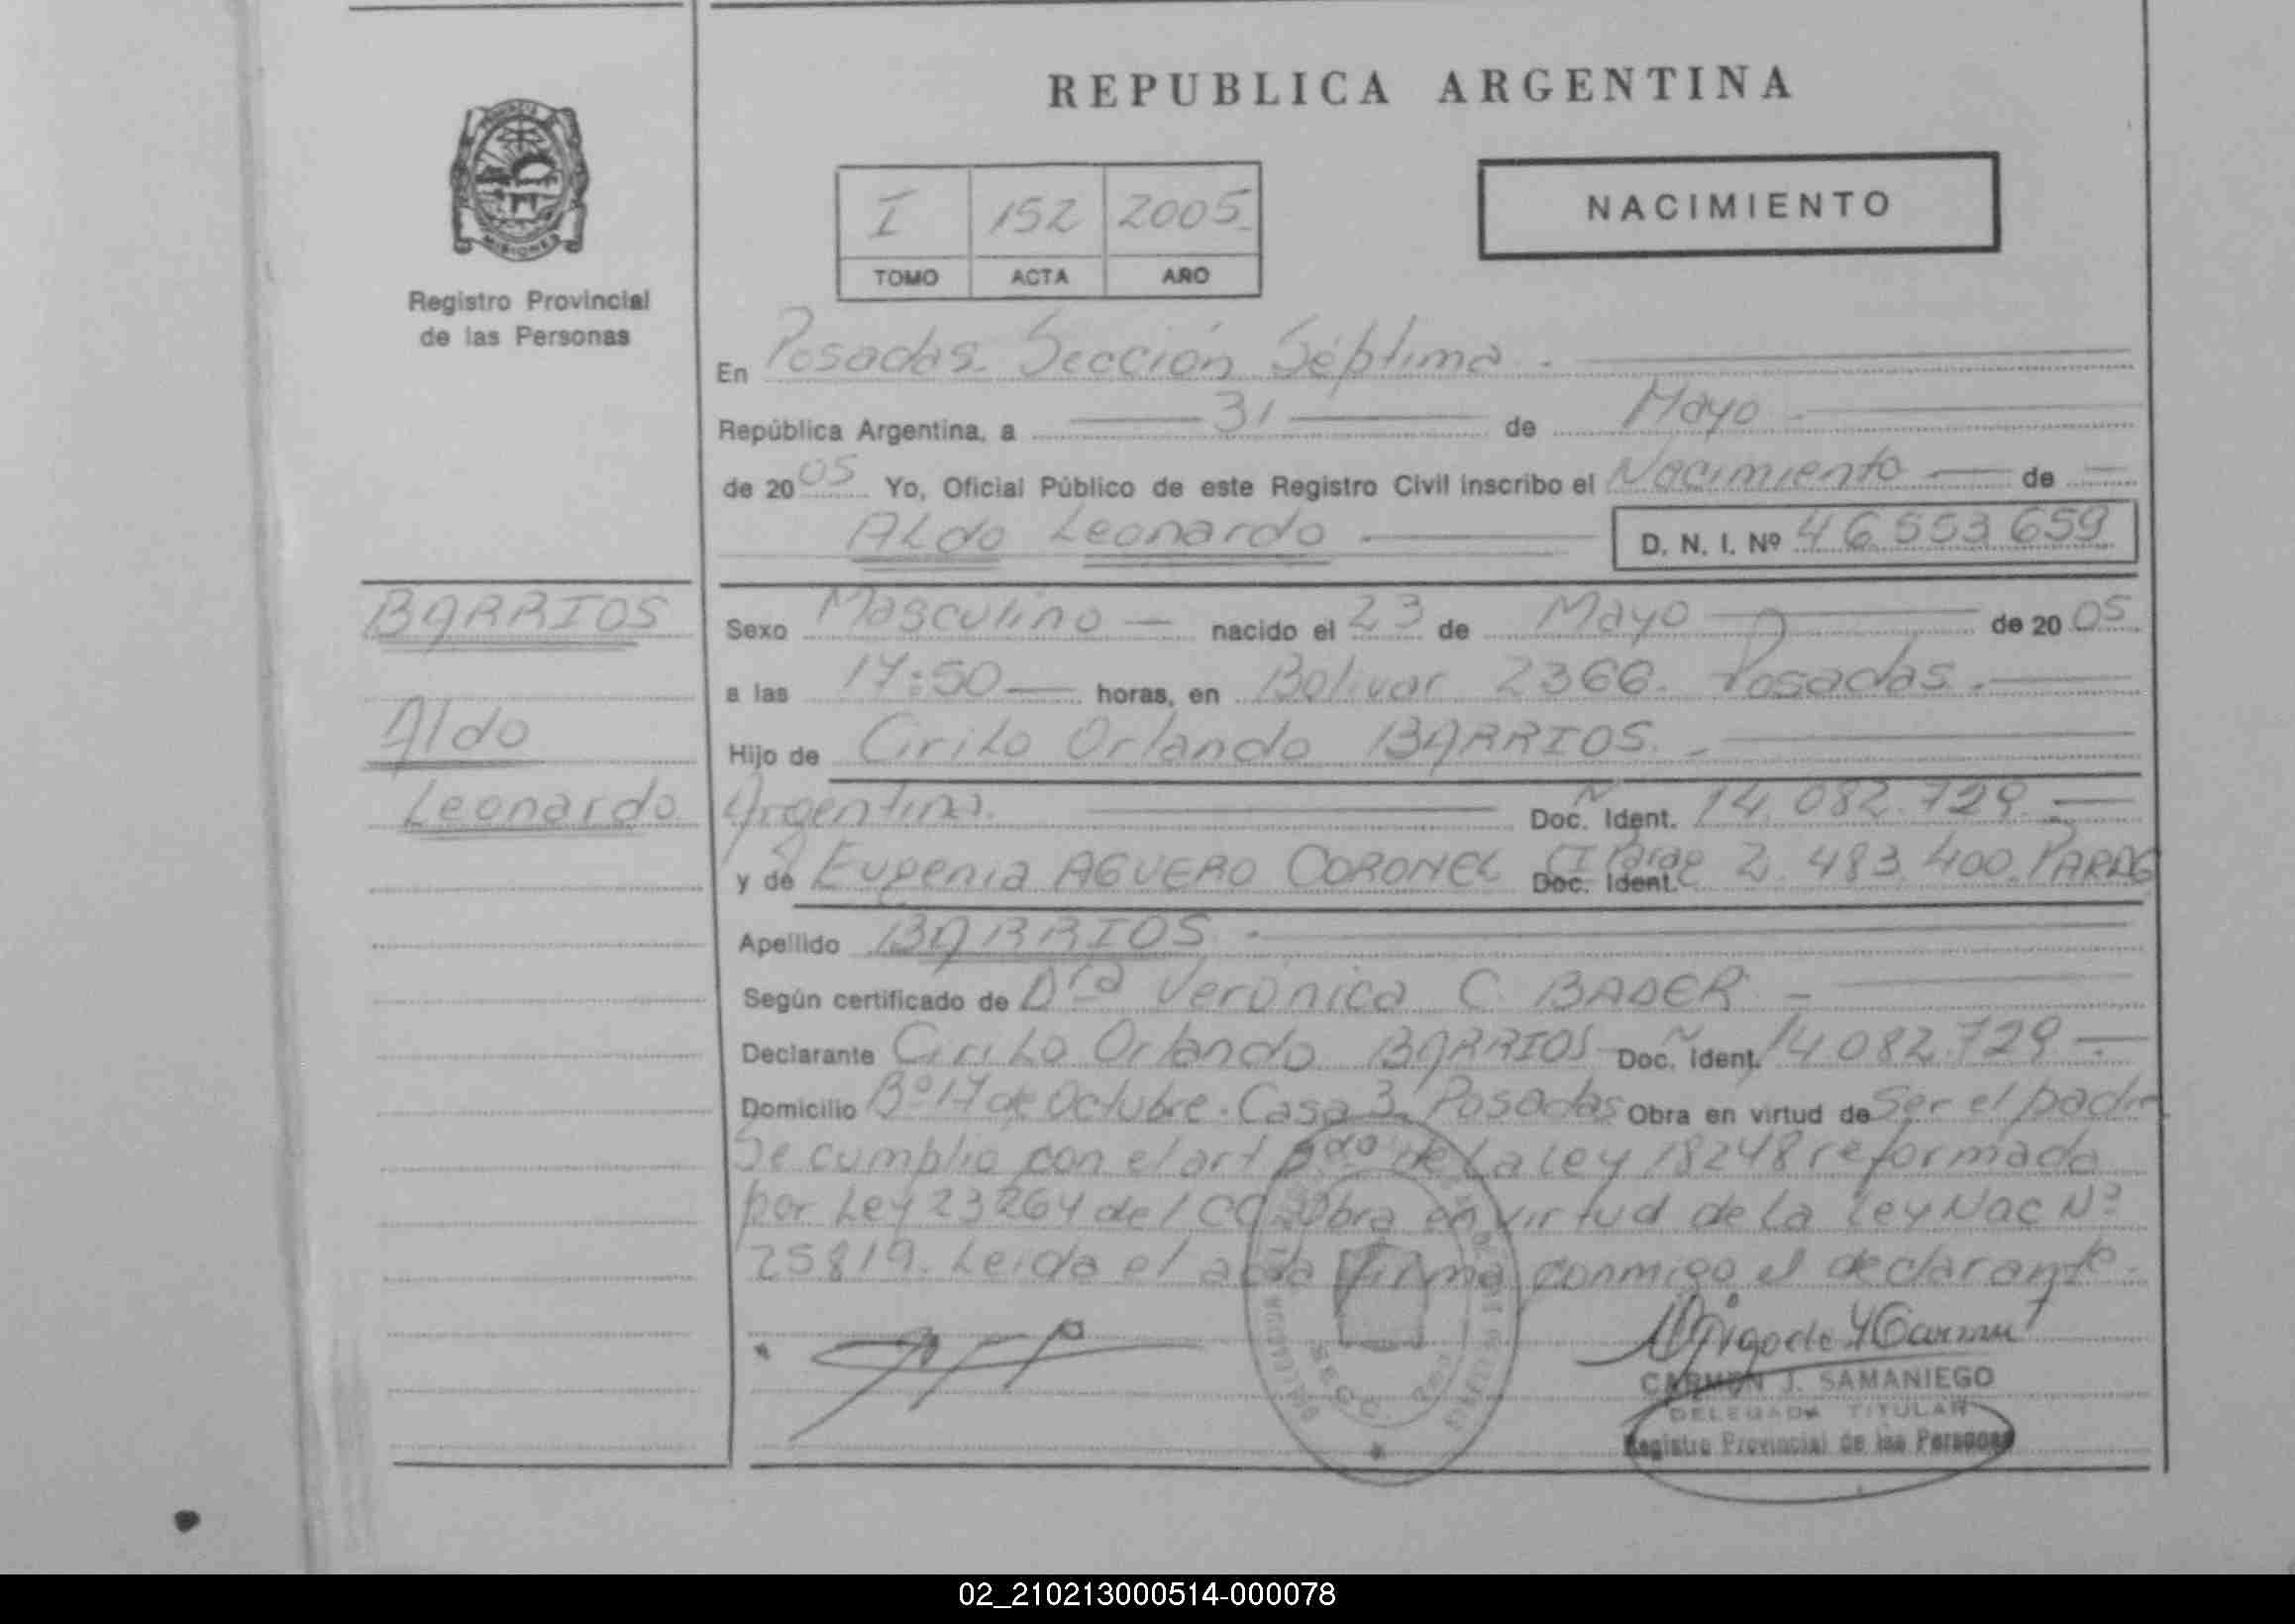 REPUBLICA ARGENTINA
MISIONES
Registro Provincial
de las Personas
I 152 2005
TOMO ACTA AÑO
NACIMIENTO
En Posadas. Sección Séptima.
República Argentina, a 31 de Mayo
de 2005 Yo, Oficial Público de este Registro Civil inscribo el Nacimiento de
Aldo Leonardo D. N. I. Nº 46 553 659
BARRIOS
Aldo
Leonardo
Sexo Masculino nacido el 23 de Mayo de 2005
a las 17:50 horas, en Bolivar 2366. Posadas.
Hijo de Cirilo Orlando BARRIOS.
Argentina. Doc. Ident. 14.082.729.
y de Eugenia AGUERO CORONEL Doc. Ident. CI Parag 2.483.400. PARAG
Apellido BARRIOS.
Según certificado de Dra Verónica C. BADER
Declarante Cirilo Orlando BARRIOS Doc. Ident. 14.082.729
Domicilio Bº 17 de Octubre. Casa 3. Posadas Obra en virtud de Ser el padre
Se cumplio con el art de la Ley 18248 reformada
por Ley 23264 del CC. Obra en virtud de la Ley Nac Nº
25819. Leida el acta firma conmigo el declarante.
CARMEN J. SAMANIEGO
DELEGADA TITULAR
Registro Provincial de las Personas
02_210213000514-000078